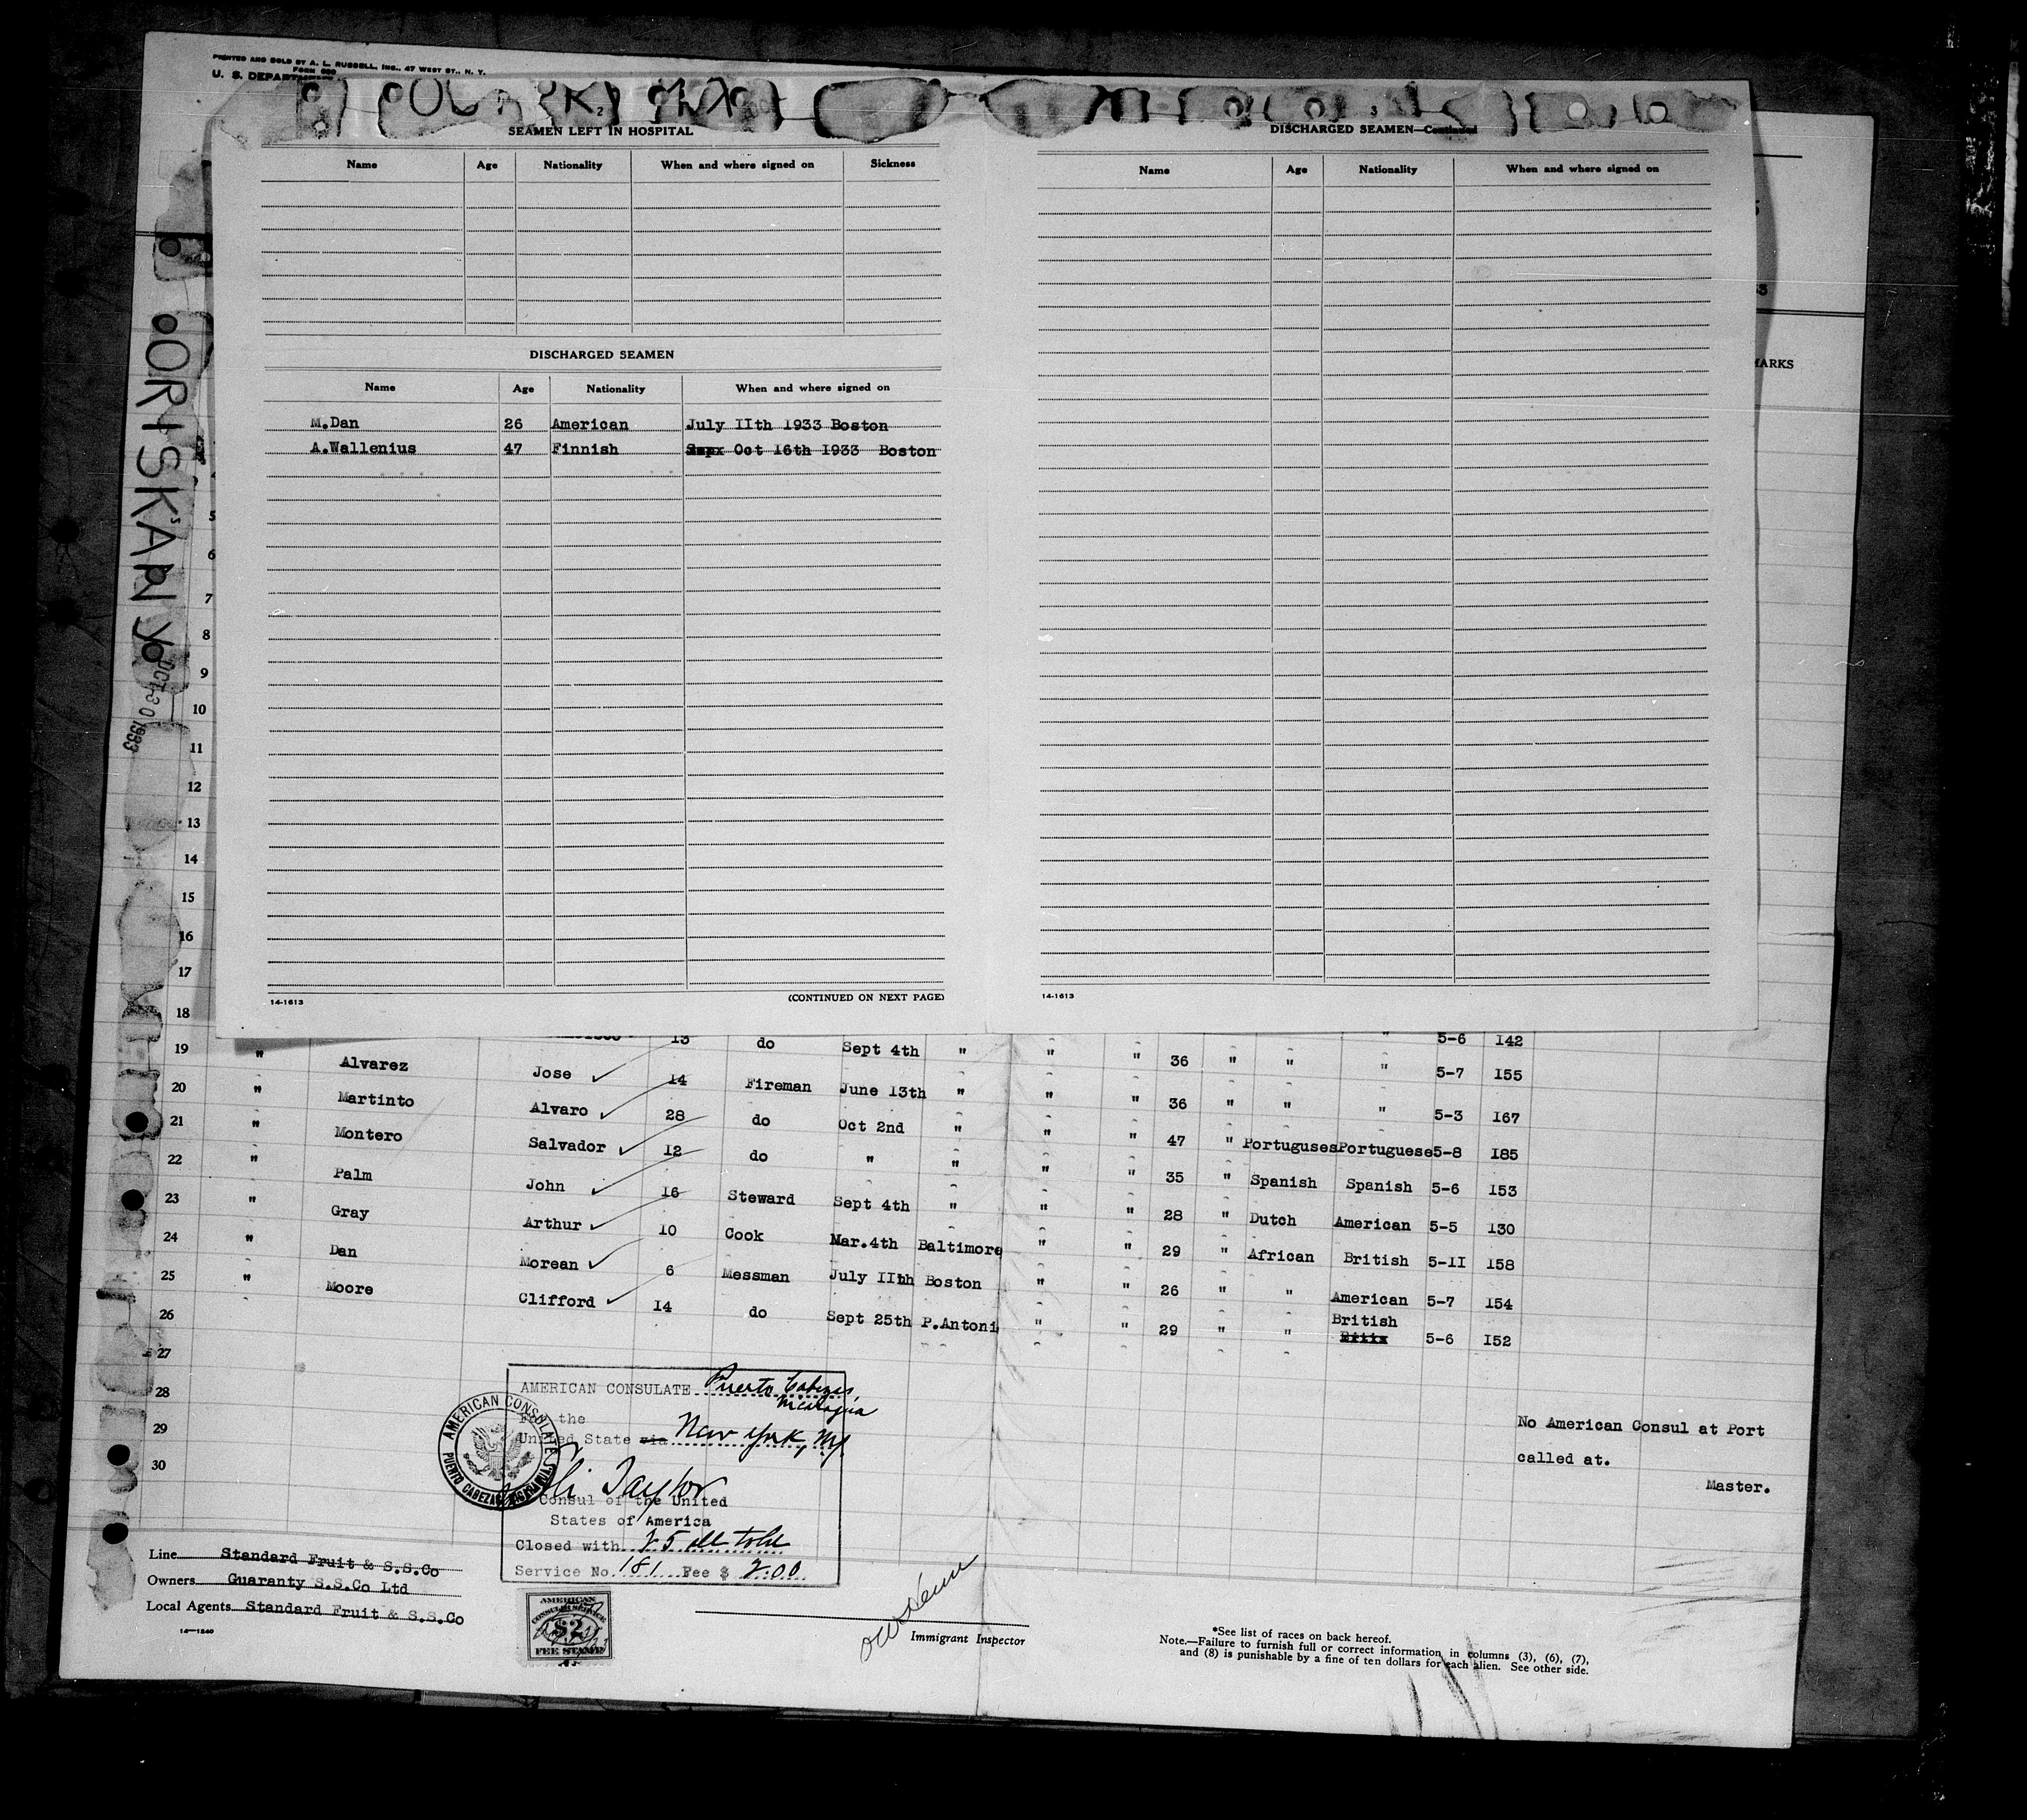 PRINTED AND SOLD BY A. L. RUSSELL, INC., 47 WEST ST., N. Y.
FORM 680
U. S. DEPART
2
SEAMEN LEFT IN HOSPITAL
Name Age Nationality When and where signed on Sickness
DISCHARGED SEAMEN
Name Age Nationality When and where signed on
M.Dan 26 American July IIth I933 Boston
A.Wallenius 47 Finnish Oct I6th I933 Boston
14-1613 (CONTINUED ON NEXT PAGE)
3
DISCHARGED SEAMEN—Continued
Name Age Nationality When and where signed on
14-1613
MARKS
OCT 30 1933
5
6
7
8
9
10
11
12
13
14
15
16
17
18
I3 do Sept 4th " " " 36 " " " 5-6 I42
19 " Alvarez Jose I4 Fireman June I3th " " " 36 " " " 5-7 I55
20 " Martinto Alvaro 28 do Oct 2nd " " " 47 " Portuguses Portuguese 5-3 I67
21 " Montero Salvador I2 do " " " " 35 " Spanish Spanish 5-8 I85
22 " Palm John I6 Steward Sept 4th " " " 28 " Dutch American 5-6 I53
23 " Gray Arthur I0 Cook Mar.4th Baltimore " " 29 " African British 5-5 I30
24 " Dan Morean 6 Messman July IIth Boston " " 26 " " American 5-II I58
25 " Moore Clifford I4 do Sept 25th P.Antoni " " 29 " " British 5-7 I54
26 5-6 I52
27
28
29
30
AMERICAN CONSULATE Puerto Cabezas,
Nicaragua
For the
United State via New York, NY.
Eli Taylor
Consul of the United
States of America
Closed with 25 all told
Service No. 181 Fee $ 2.00
AMERICAN CONSULATE
PUERTO CABEZAS, NICARAGUA
No American Consul at Port
called at.
Master.
Line Standard Fruit & S.S.Co
Owners Guaranty S.S.Co Ltd
Local Agents Standard Fruit & S.S.Co
14—1240
AMERICAN
CONSULAR SERVICE
$2
FEE STAMP
Immigrant Inspector
*See list of races on back hereof.
Note.—Failure to furnish full or correct information in columns (3), (6), (7),
and (8) is punishable by a fine of ten dollars for each alien. See other side.